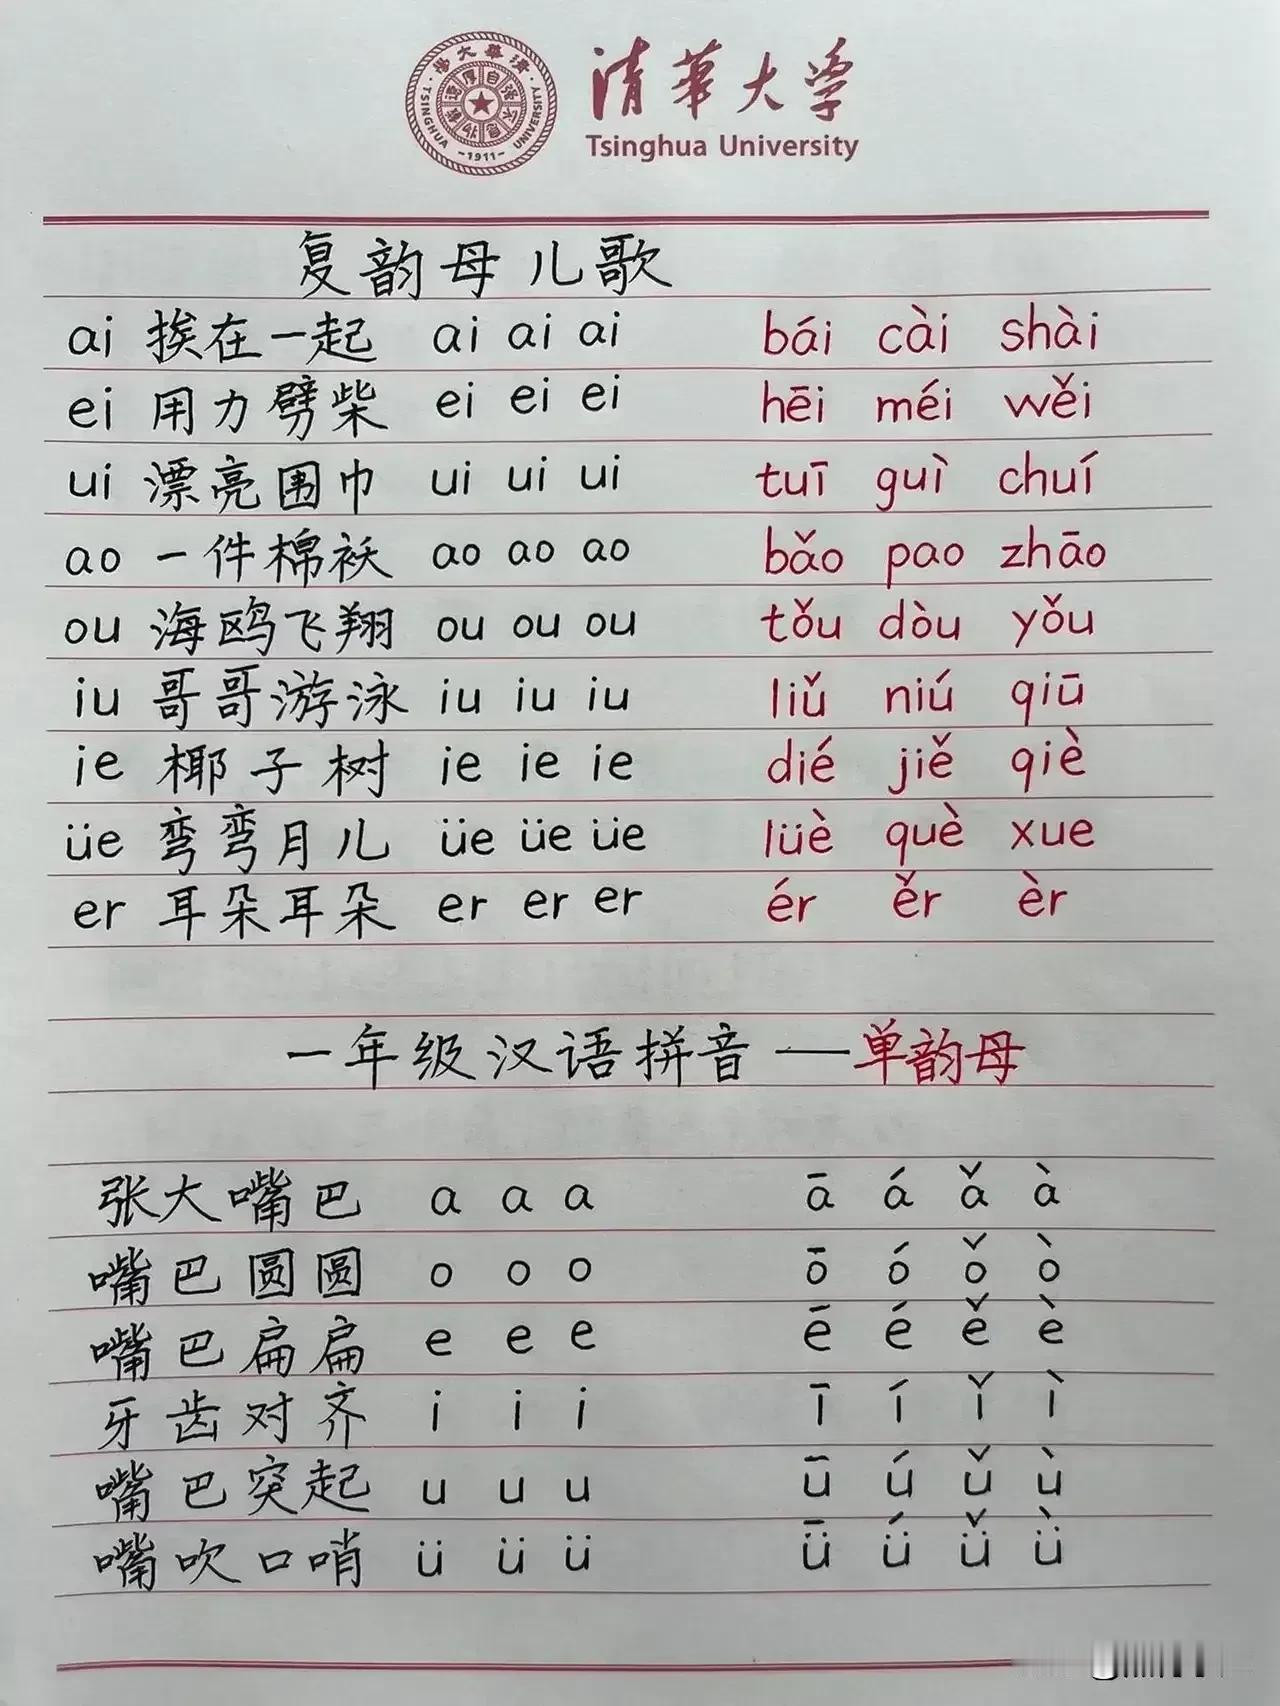 清華大学
Tsinghua University
TSINGHUA UNIVERSITY
-1911-
复韵母儿歌
ai 挨在一起 ai ai ai bái cài shài
ei 用力劈柴 ei ei ei hēi méi wěi
ui 漂亮围巾 ui ui ui tuī guì chuí
ao 一件棉袄 ao ao ao bǎo pao zhāo
ou 海鸥飞翔 ou ou ou tǒu dòu yǒu
iu 哥哥游泳 iu iu iu liǔ niú qiū
ie 椰子树 ie ie ie dié jiě qiè
üe 弯弯月儿 üe üe üe lüè què xue
er 耳朵耳朵 er er er ér ěr èr
一年级汉语拼音——单韵母
张大嘴巴 a a a ā á ǎ à
嘴巴圆圆 o o o ō ó ǒ ò
嘴巴扁扁 e e e ē é ě è
牙齿对齐 i i i ī í ǐ ì
嘴巴突起 u u u ū ú ǔ ù
嘴吹口哨 ü ü ü ǖ ǘ ǚ ǜ